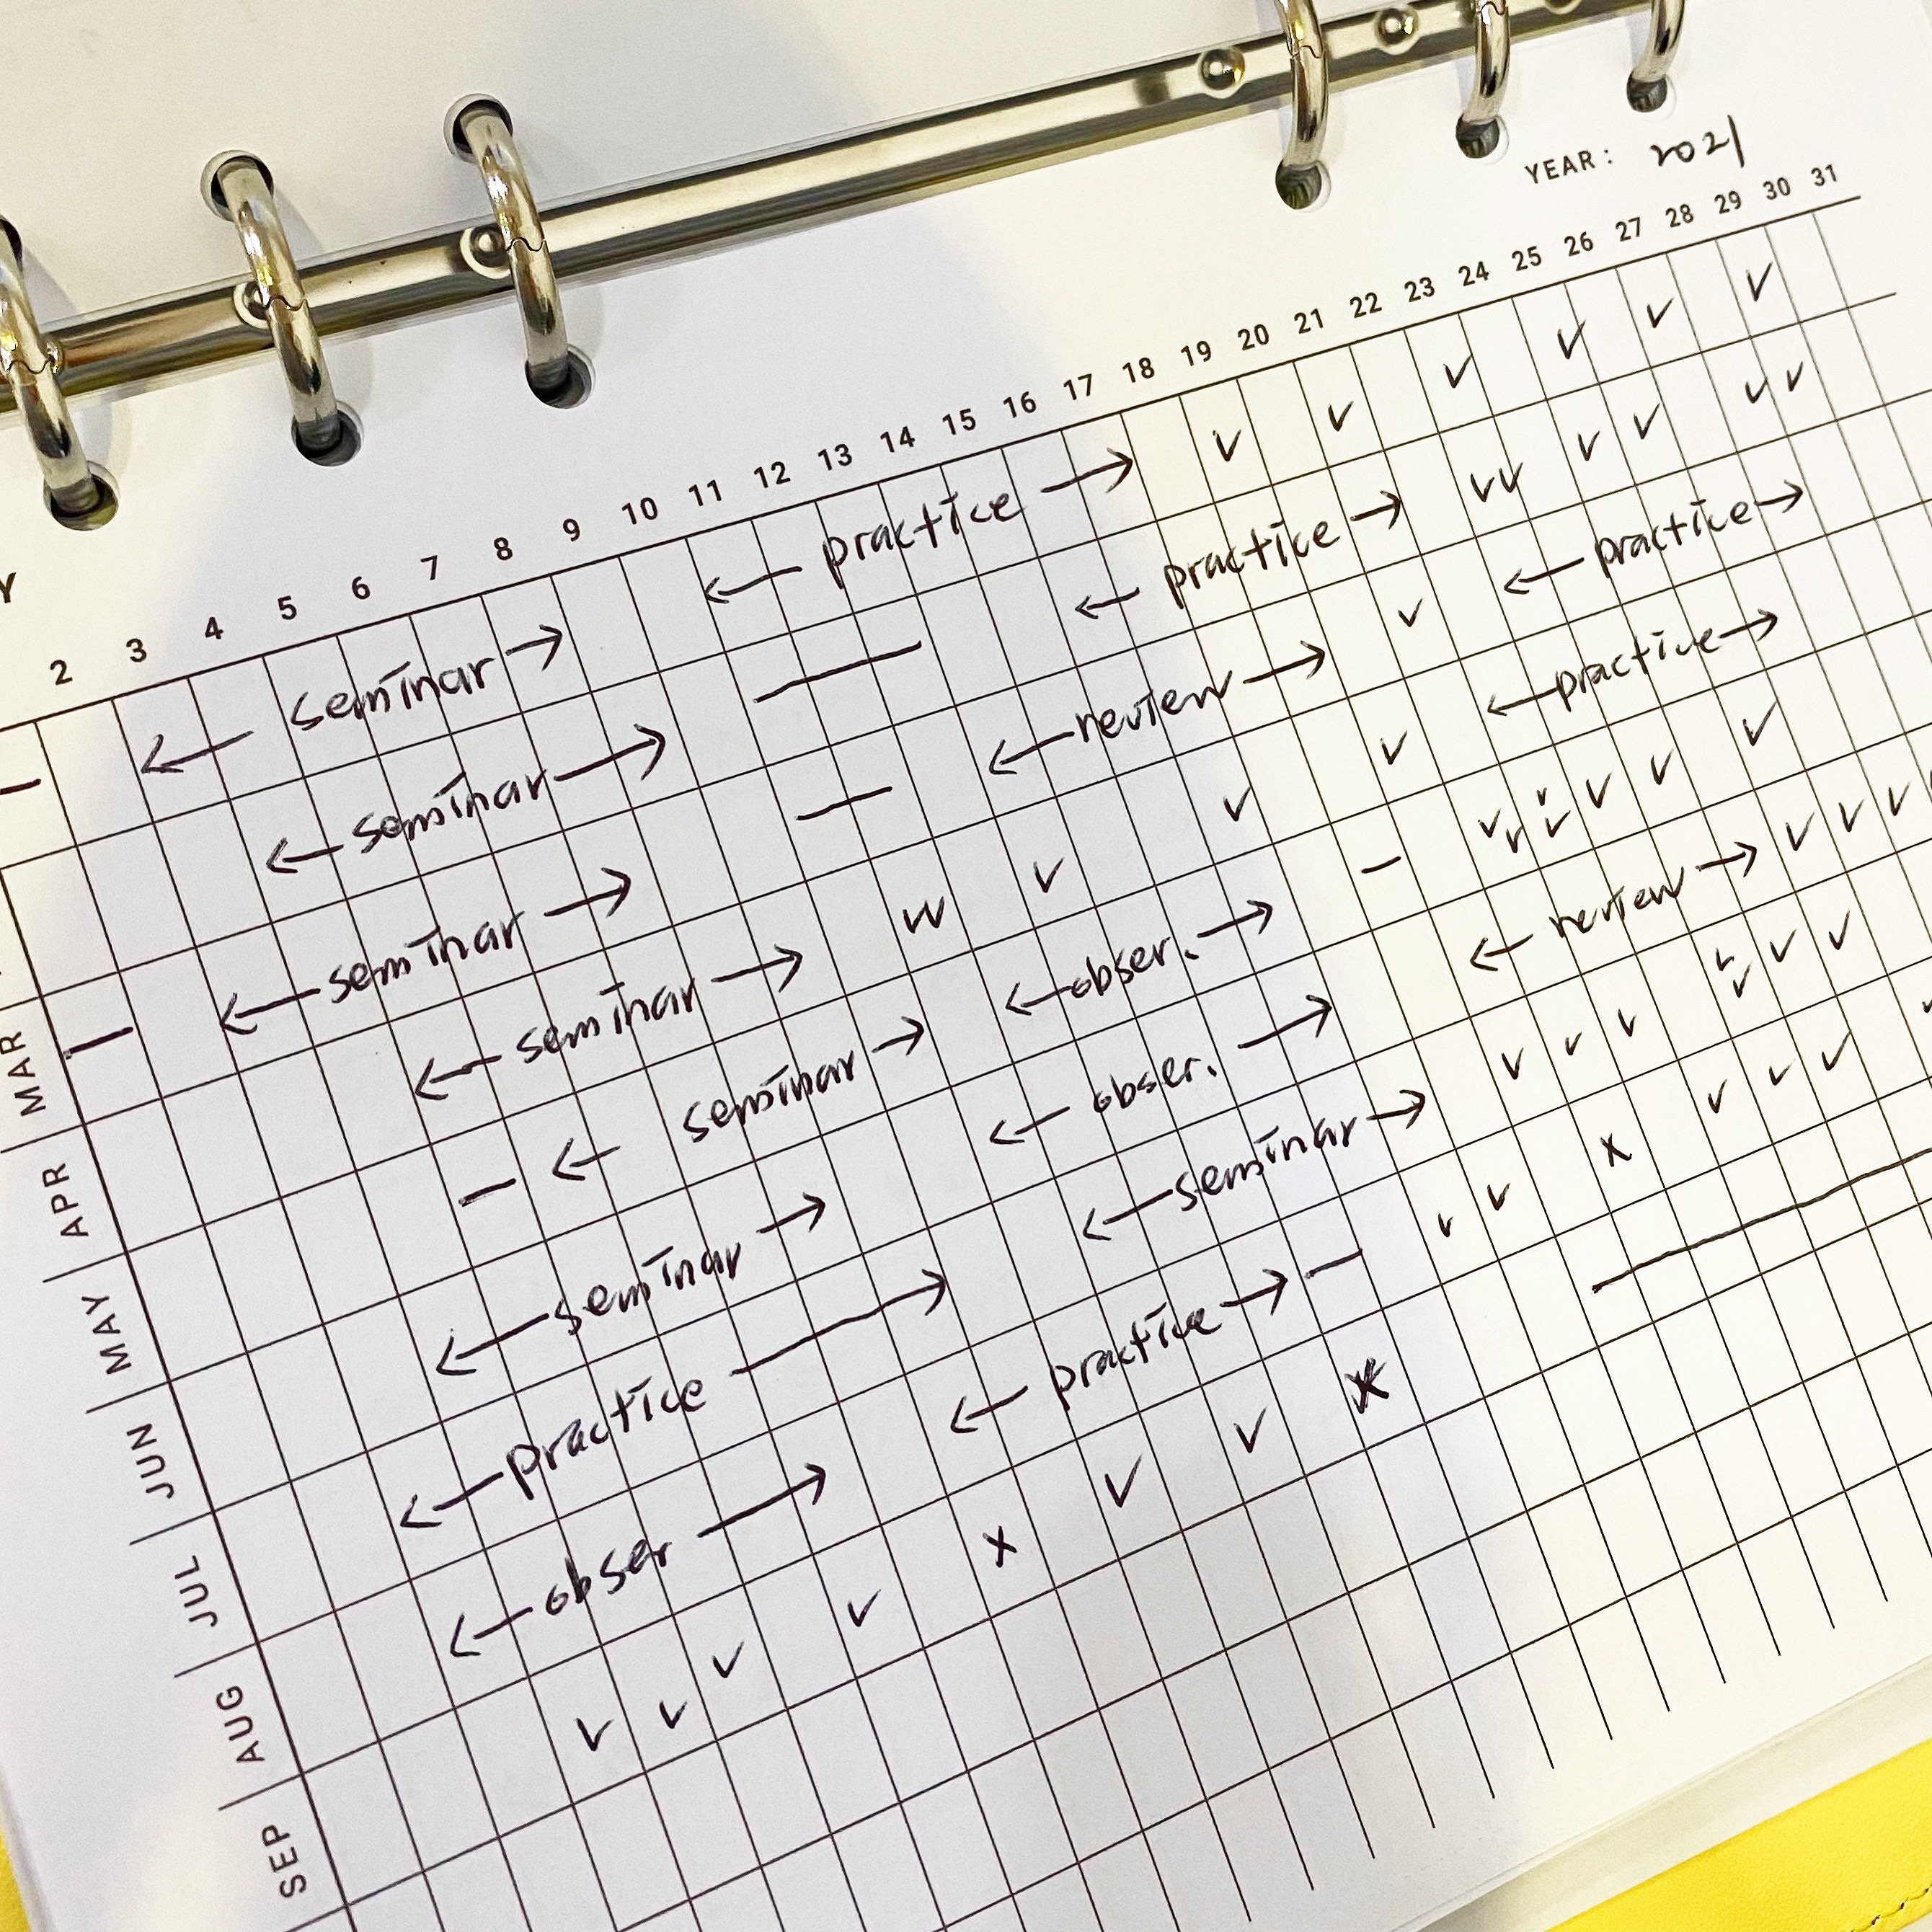 YEAR: 2021
Y
2 3 4 5 6 7 8 9 10 11 12 13 14 15 16 17 18 19 20 21 22 23 24 25 26 27 28 29 30 31
— ← seminar → ← practice → ✓ ✓ ✓ ✓ ✓ ✓
← seminar → — ← practice → ✓✓ ✓ ✓ ✓ ✓
MAR — ← seminar → — ← review → ✓ ← practice →
APR ← seminar → ✓✓ ✓ ✓ ✓ ← practice →
MAY — ← seminar → ← obser. → — ✓ ✓ ✓ ✓ ✓ ✓ ✓
JUN ← seminar → ← obser. → ← review → ✓ ✓ ✓
JUL ← practice → ← seminar → ✓ ✓ ✓ ✓ ✓ ✓ ✓
AUG ← obser → ← practice → — ✓ ✓ x ✓ ✓ ✓
SEP ✓ ✓ ✓ ✓ x ✓ ✓ x —